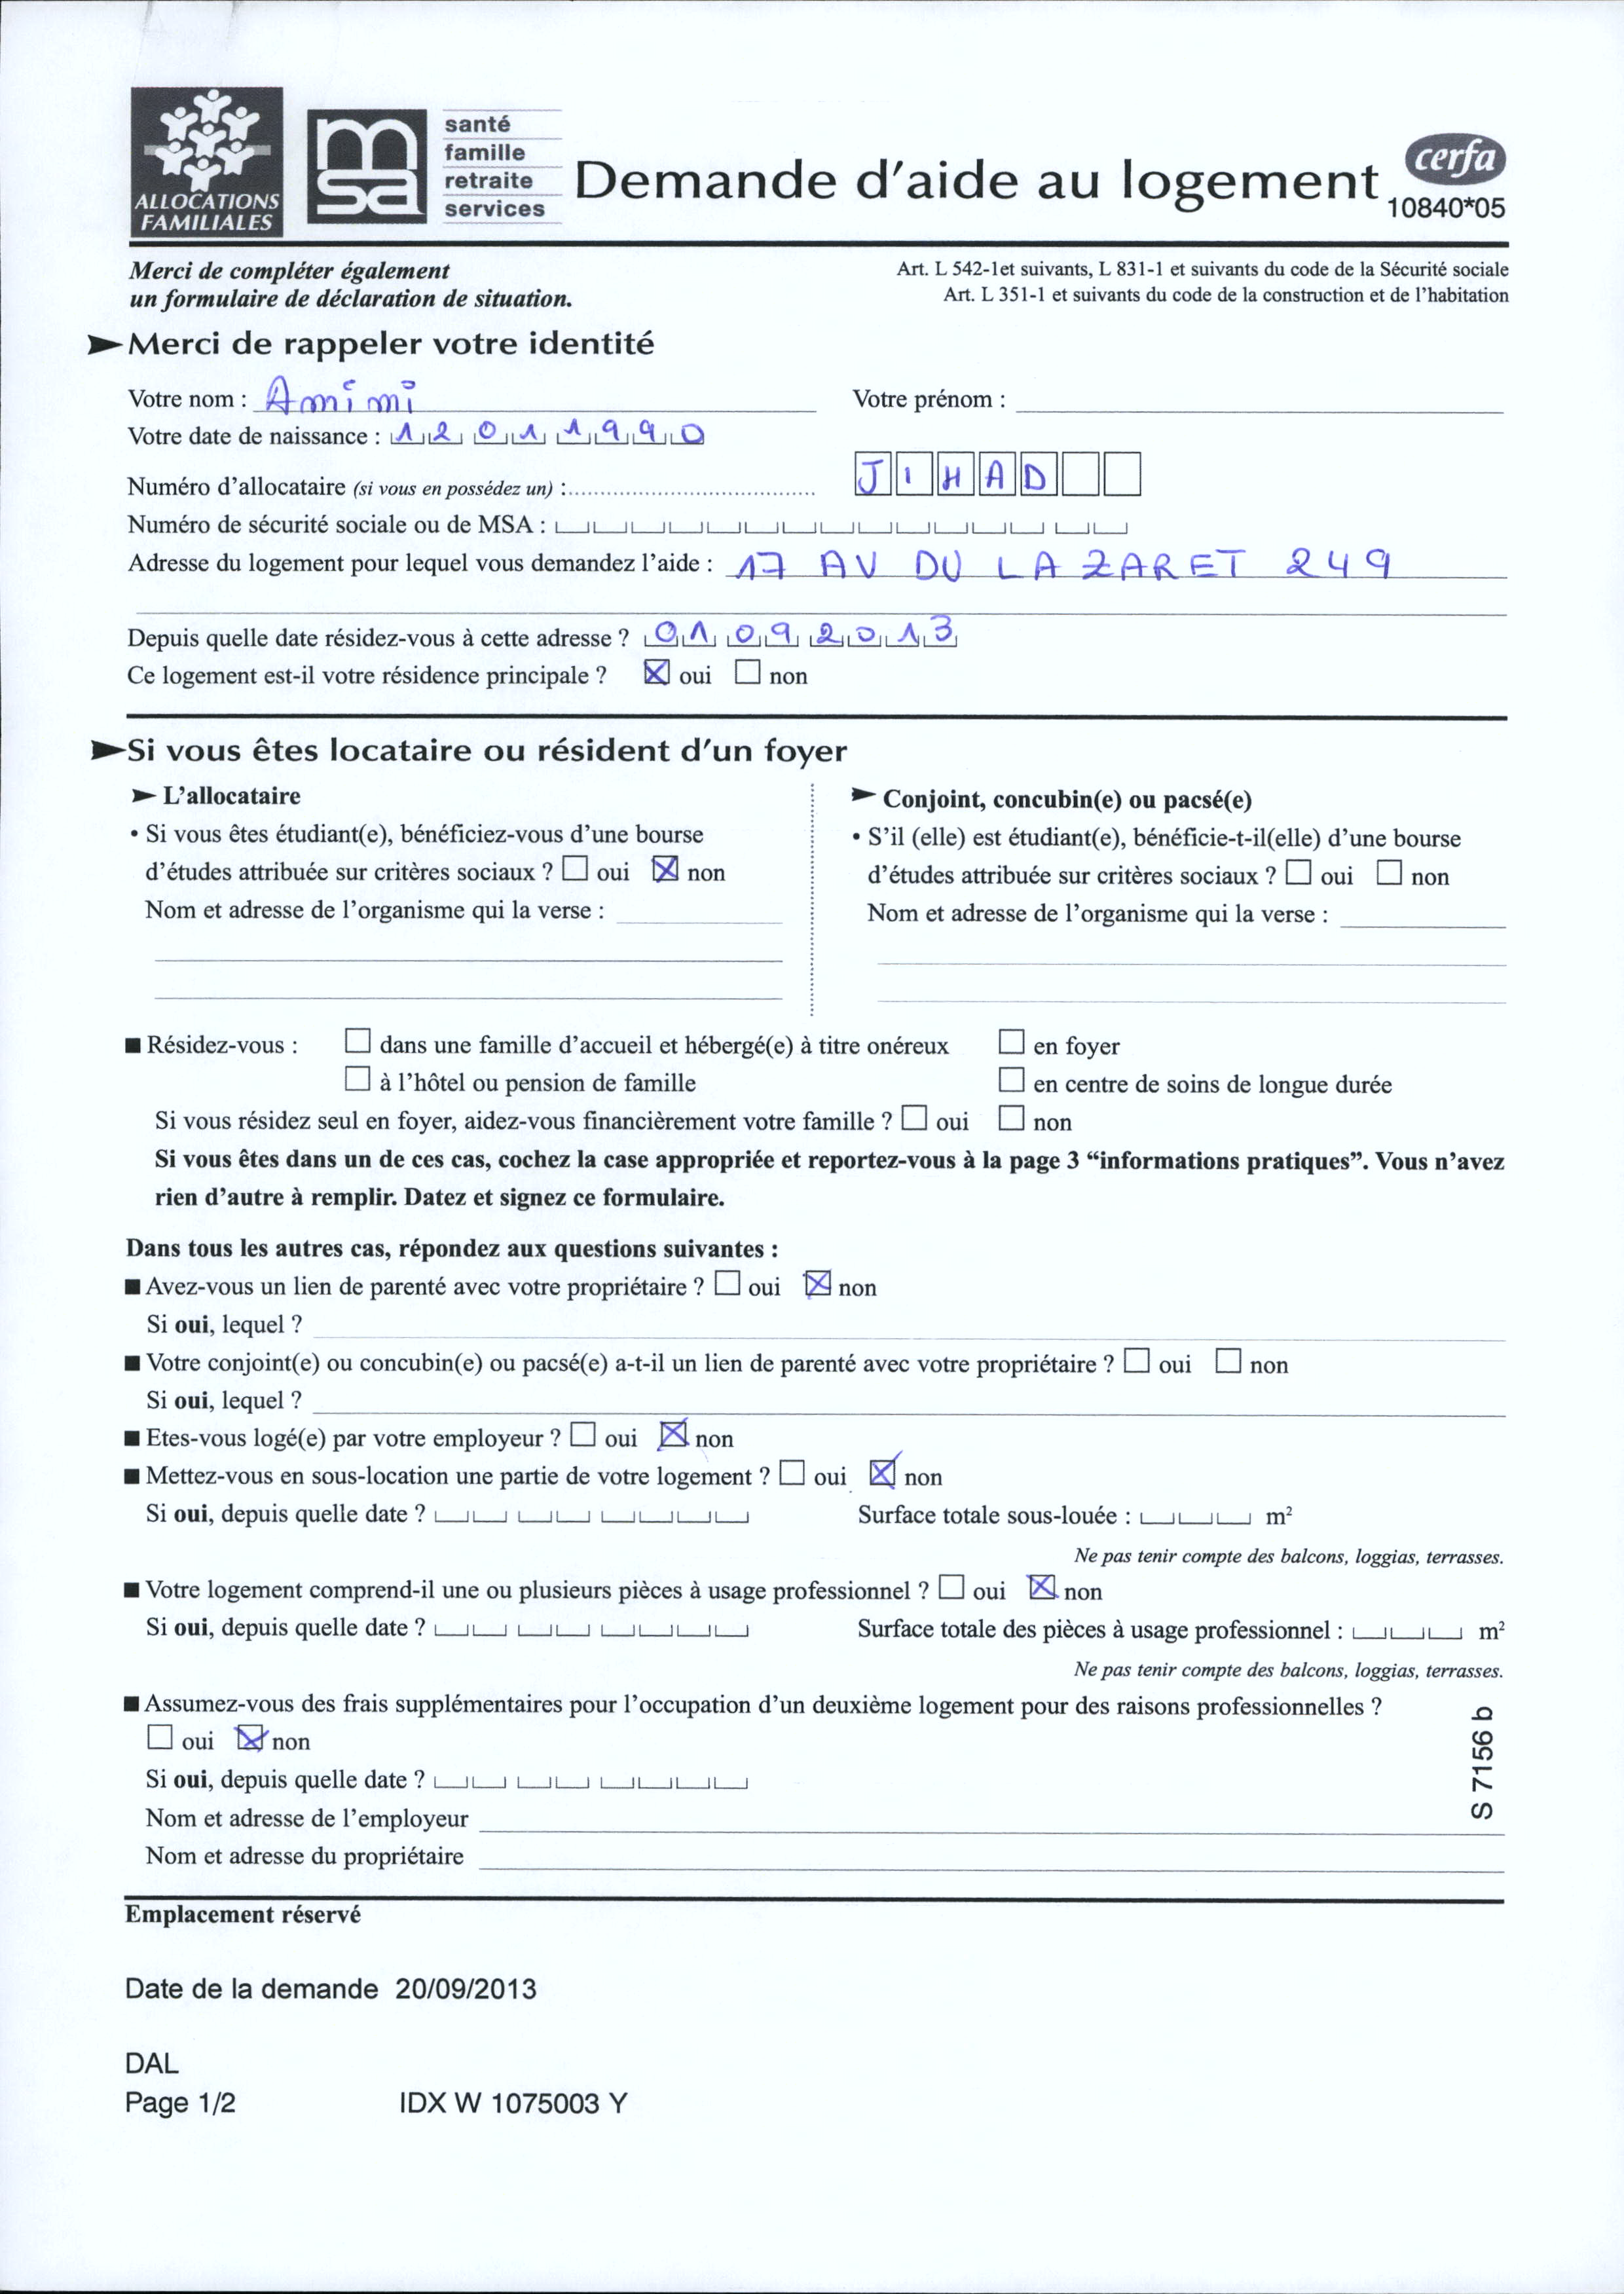 ALLOCATIONS
FAMILIALES
msa
santé
famille
retraite
services
Demande d'aide au logement
cerfa
10840*05
Merci de compléter également
un formulaire de déclaration de situation.
Art. L 542-1et suivants, L 831-1 et suivants du code de la Sécurité sociale
Art. L 351-1 et suivants du code de la construction et de l'habitation
Merci de rappeler votre identité
Votre nom : Amimi Votre prénom :
Votre date de naissance : 12 01 1990
Numéro d'allocataire (si vous en possédez un) : JIHAD
Numéro de sécurité sociale ou de MSA :
Adresse du logement pour lequel vous demandez l'aide : 17 AV DU LAZARET 249
Depuis quelle date résidez-vous à cette adresse ? 01 09 2013
Ce logement est-il votre résidence principale ? ☒ oui ☐ non
Si vous êtes locataire ou résident d'un foyer
L'allocataire
• Si vous êtes étudiant(e), bénéficiez-vous d'une bourse
d'études attribuée sur critères sociaux ? ☐ oui ☒ non
Nom et adresse de l'organisme qui la verse :
Conjoint, concubin(e) ou pacsé(e)
• S'il (elle) est étudiant(e), bénéficie-t-il(elle) d'une bourse
d'études attribuée sur critères sociaux ? ☐ oui ☐ non
Nom et adresse de l'organisme qui la verse :
■ Résidez-vous : ☐ dans une famille d'accueil et hébergé(e) à titre onéreux ☐ en foyer
☐ à l'hôtel ou pension de famille ☐ en centre de soins de longue durée
Si vous résidez seul en foyer, aidez-vous financièrement votre famille ? ☐ oui ☐ non
Si vous êtes dans un de ces cas, cochez la case appropriée et reportez-vous à la page 3 “informations pratiques”. Vous n'avez
rien d'autre à remplir. Datez et signez ce formulaire.
Dans tous les autres cas, répondez aux questions suivantes :
■ Avez-vous un lien de parenté avec votre propriétaire ? ☐ oui ☒ non
Si oui, lequel ?
■ Votre conjoint(e) ou concubin(e) ou pacsé(e) a-t-il un lien de parenté avec votre propriétaire ? ☐ oui ☐ non
Si oui, lequel ?
■ Etes-vous logé(e) par votre employeur ? ☐ oui ☒ non
■ Mettez-vous en sous-location une partie de votre logement ? ☐ oui ☒ non
Si oui, depuis quelle date ? Surface totale sous-louée : m²
Ne pas tenir compte des balcons, loggias, terrasses.
■ Votre logement comprend-il une ou plusieurs pièces à usage professionnel ? ☐ oui ☒ non
Si oui, depuis quelle date ? Surface totale des pièces à usage professionnel : m²
Ne pas tenir compte des balcons, loggias, terrasses.
■ Assumez-vous des frais supplémentaires pour l'occupation d'un deuxième logement pour des raisons professionnelles ?
☐ oui ☒ non
Si oui, depuis quelle date ?
Nom et adresse de l'employeur
Nom et adresse du propriétaire
S 7156 b
Emplacement réservé
Date de la demande 20/09/2013
DAL
Page 1/2 IDX W 1075003 Y